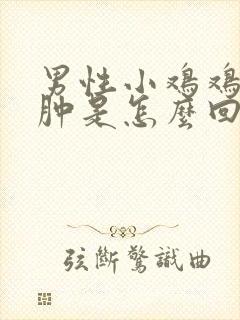 男性小鸡鸡
肿是怎麼回
弦斷驚識曲